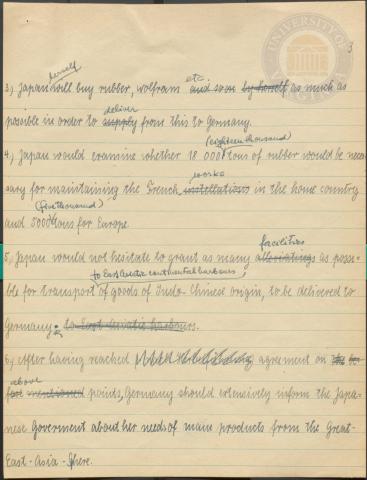 UNIVERSITY OF VIRGINIA
3
herself
etc.
3.) Japan will buy rubber, wolfram and soon by herself as much as
deliver
possible in order to supply from this to Germany.
(eighteen thousand)
4.) Japan would examine whether 18 000 tons of rubber would be neces-
works
sary for maintaining the French installations in the home country
(five thousand)
and 5000 tons for Europe.
facilities
5.) Japan would not hesitate to grant as many alleviatings as possi-
to East Asiatic continental harbours
ble for transport of goods of Indo-Chinese origin, to be delivered to
Germany. to East-Asiatic harbours.
6.) After having reached agreement on the
above
mentioned points, Germany should extensively inform the Japa-
nese Goverment about her needs of main products from the Great-
East-Asia-Sphere.